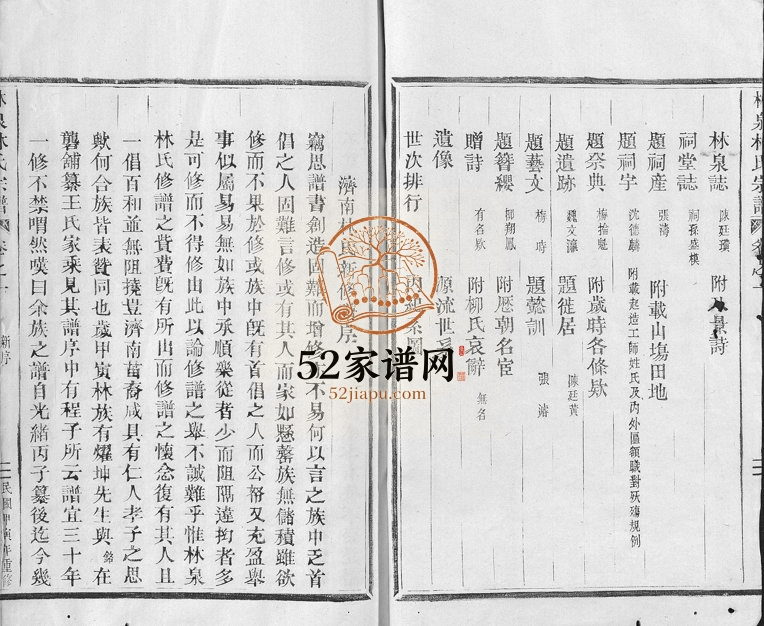 林泉林氏宗譜
林泉誌 陳廷璸 附 景詩
祠堂誌 祠孫盛模
題祠產 張濤 附載山塲田地
題祠宇 沈德麟 附載起造工師姓氏及內外區額職對殀殤規例
題祭典 梅掄魁 附歲時各條欵
題遺跡 魏文瀛 題徙居 陳廷黃
題藝文 梅時 題懿訓 張濬
題簪纓 柳翔鳳 附歷朝名宦
贈詩 有名欵 附柳氏哀辭 無名
遺像 源流世
世次排行 內 圖
濟南林氏新修 序
竊思譜書創造固難而增修 不易何以言之族中乏首
倡之人固難言修或有其人而家如懸罄族無儲積雖欲
修而不果於修或族中旣有首倡之人而公帑又充盈舉
事似屬易易無如族中承順樂從者少而阻隔違拘者多
是可修而不得修由此以論修譜之舉不誠難乎惟林泉
林氏修譜之費費旣有所出而修譜之懷念復有其人且
一倡百和並無阻撓豈濟南苗裔咸具有仁人孝子之思
歟何合族皆表贊同也歲甲寅林族有燿坤先生與銘在
龔舖纂王氏家乘見其譜序中有程子所云譜宜三十年
一修不禁喟然嘆曰余族之譜自光緒丙子纂後迄今幾
林泉林氏宗譜 卷之一 新序 二 民國甲寅年重修
52家谱网
52jiapu.com